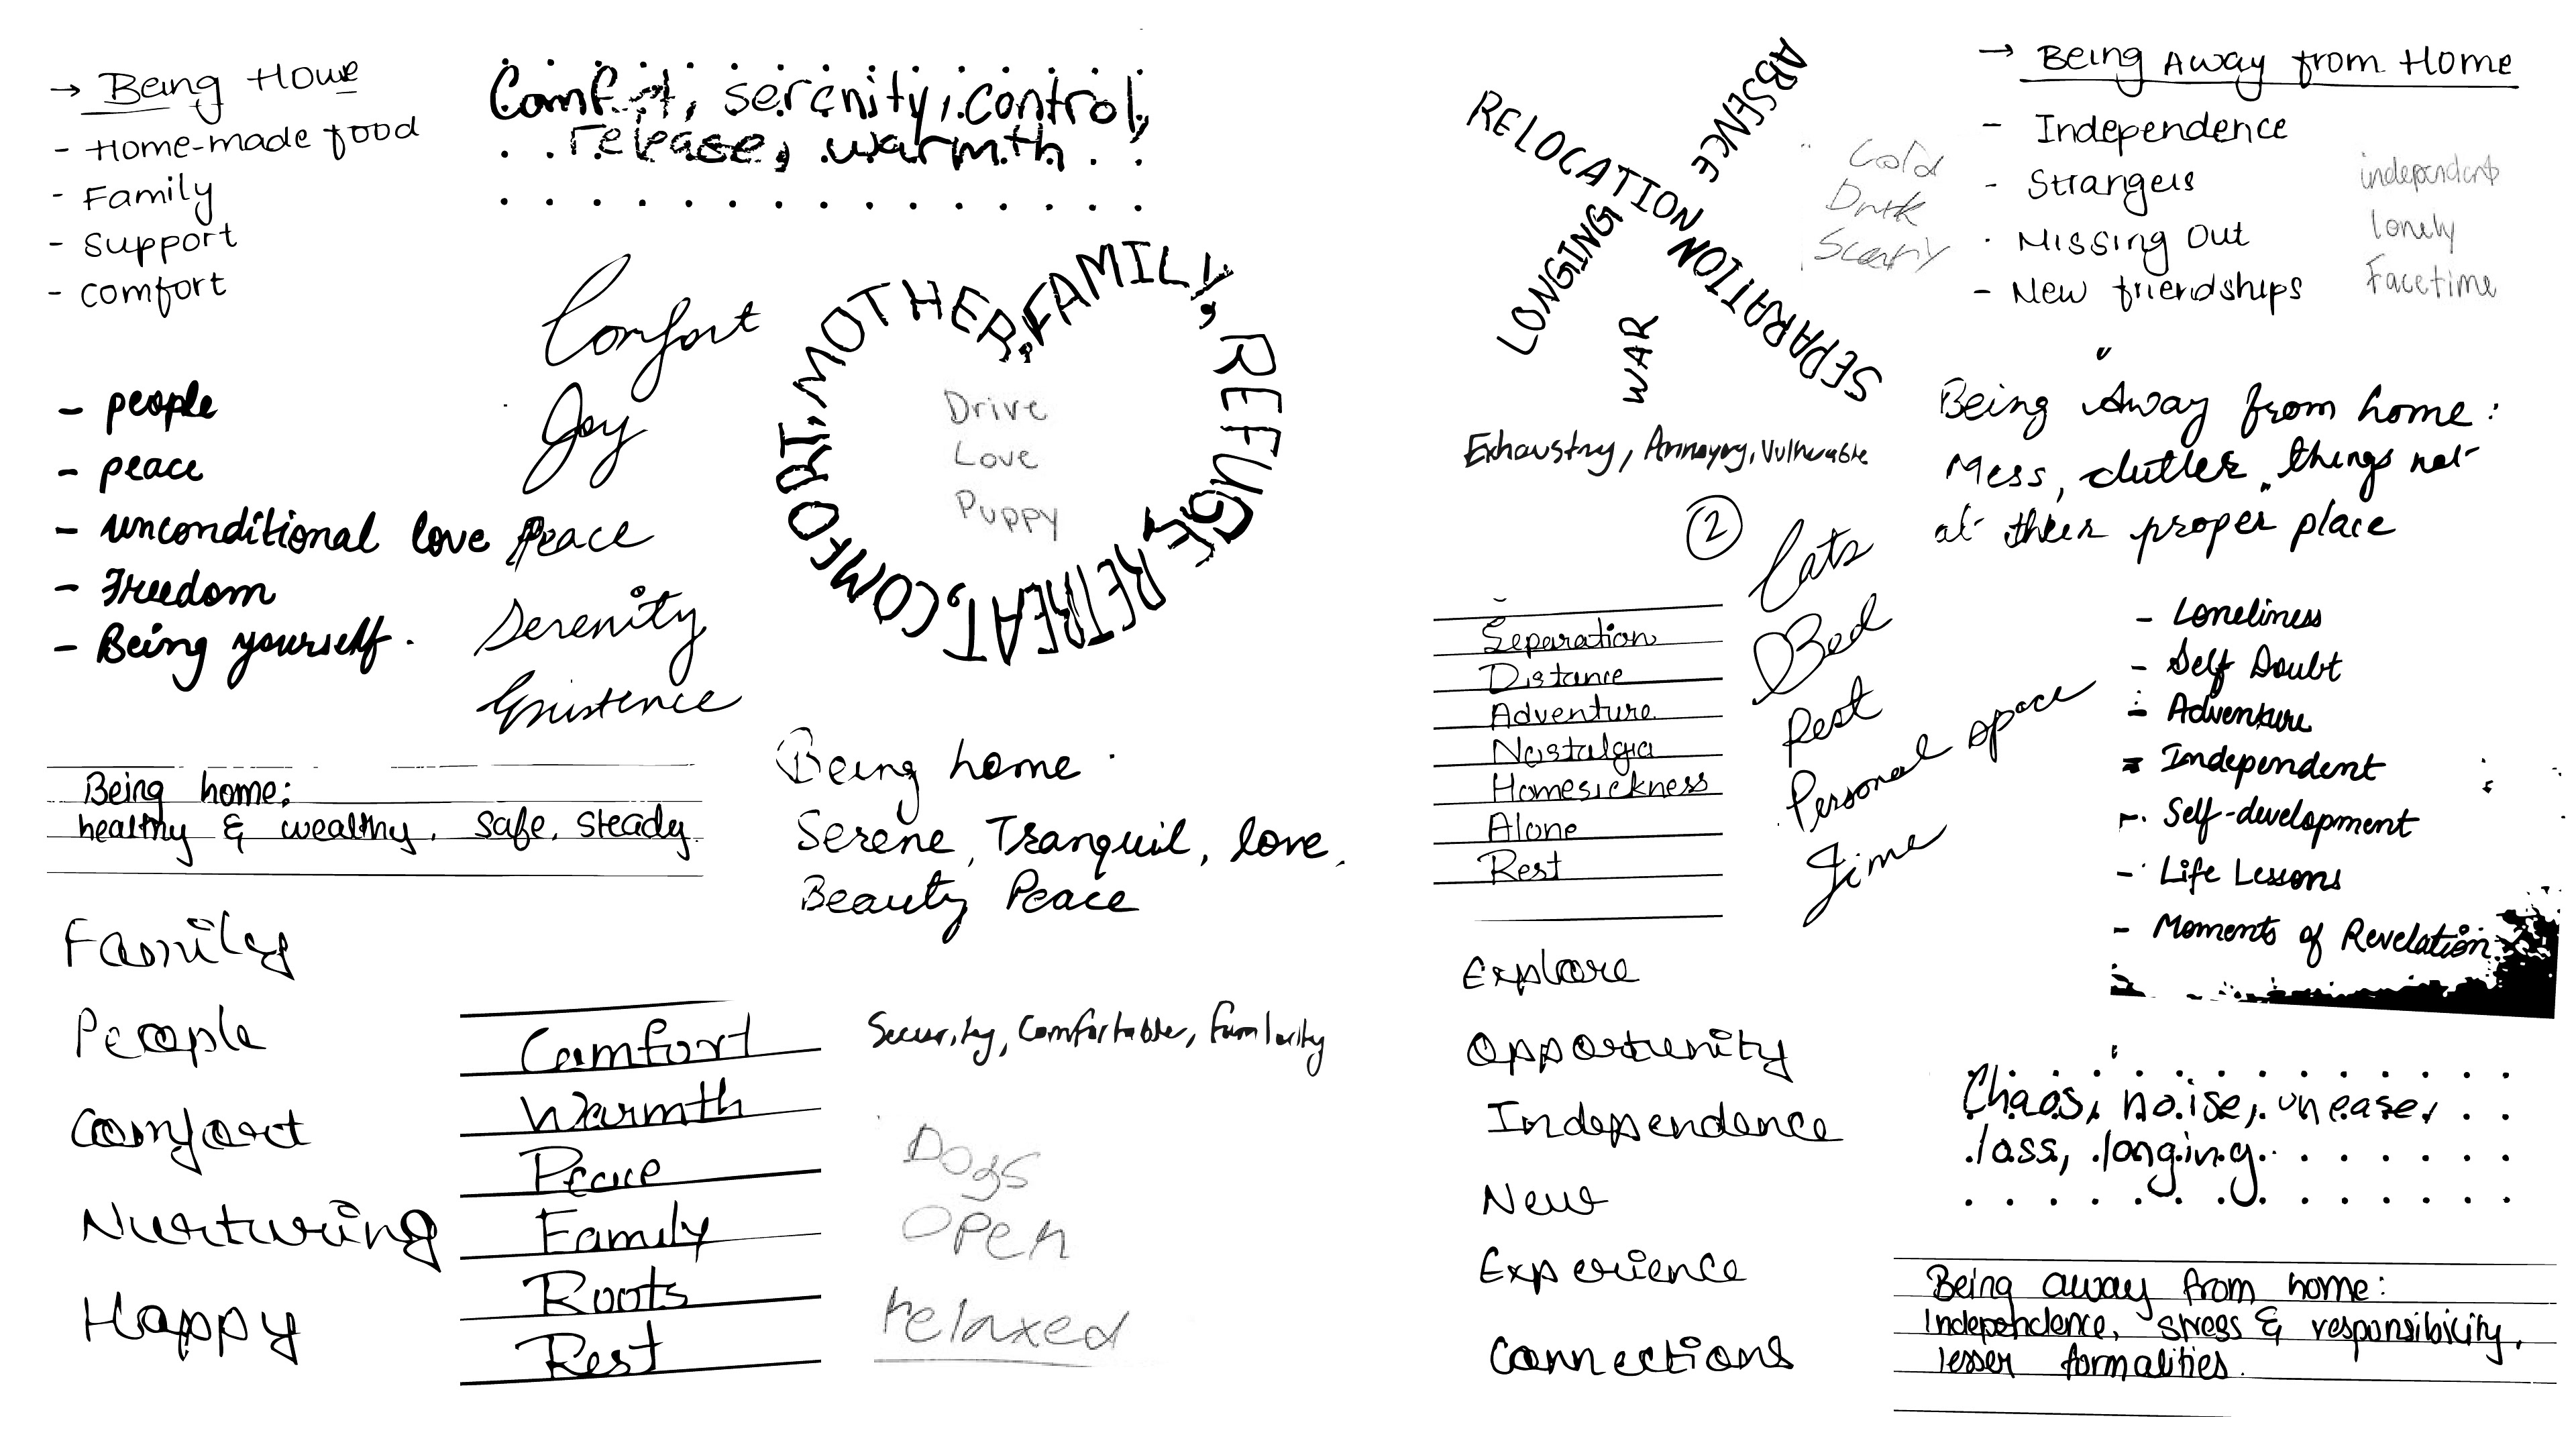 → Being Home
- Home-made food
- Family
- Support
- comfort
Comfort, serenity, control,
release, warmth
- people
- peace
- unconditional love
- Freedom
- Being yourself.
Comfort
Joy
Peace
Serenity
Existence
MOTHER, FAMILY, REFUGE, RETREAT, COMFORT,
Drive
Love
Puppy
Being home:
healthy & wealthy, safe, steady.
Being home
Serene, Tranquil, love,
Beauty Peace
Family
People
Comfort
Nurturing
Happy
Comfort
Warmth
Peace
Family
Roots
Rest
Security, Comfortable, Familarity
Dogs
Open
relaxed
RELOCATION
ABSENCE
LONGING
SEPARATION
WAR
Cold
Dark
Scary
→ Being Away from Home
- Independence
- Strangers
- Missing Out
- New friendships
independent
lonely
Facetime
Exhausting, Annoying, Vulnerable
Being Away from home:
Mess, clutter, things not
at their proper place
2
Cats
Bed
Rest
Personal space
Time
Separation
Distance
Adventure
Nostalgia
Homesickness
Alone
Rest
- Loneliness
- Self Doubt
- Adventure
- Independent
- Self-development
- Life Lessons
- Moments of Revelation
Explore
Opportunity
Independence
New
Experience
Connections
Chaos, noise, unease,
loss, longing
Being away from home:
Independence, stress & responsibility,
lesser formalities.